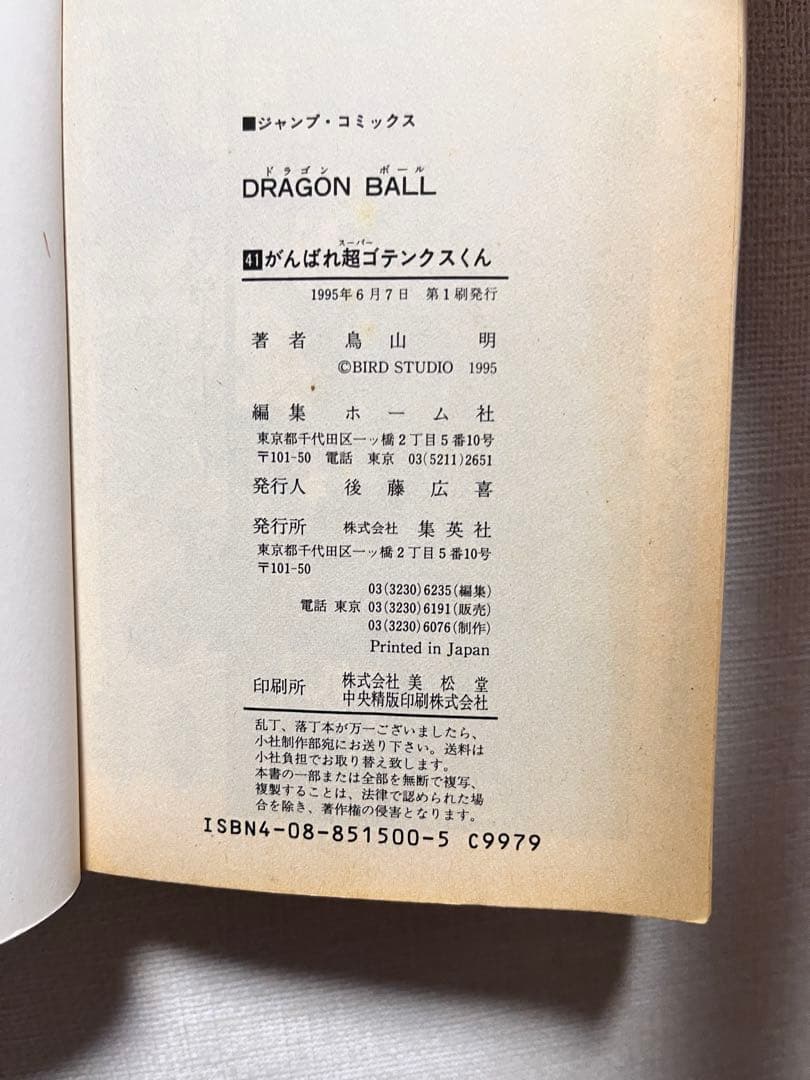 ■ジャンプ・コミックス
ドラゴン ボール
DRAGON BALL
スーパー
41がんばれ超ゴテンクスくん
1995年6月7日 第1刷発行
著者 鳥山 明
©BIRD STUDIO 1995
編集 ホーム社
東京都千代田区一ッ橋2丁目5番10号
〒101-50 電話 東京 03(5211)2651
発行人 後藤広喜
発行所 株式会社 集英社
東京都千代田区一ッ橋2丁目5番10号
〒101-50
03(3230)6235(編集)
電話 東京 03(3230)6191(販売)
03(3230)6076(制作)
Printed in Japan
印刷所 株式会社 美松堂
中央精版印刷株式会社
乱丁、落丁本が万一ございましたら、
小社制作部宛にお送り下さい。送料は
小社負担でお取り替え致します。
本書の一部または全部を無断で複写、
複製することは、法律で認められた場
合を除き、著作権の侵害となります。
ISBN4-08-851500-5 C9979